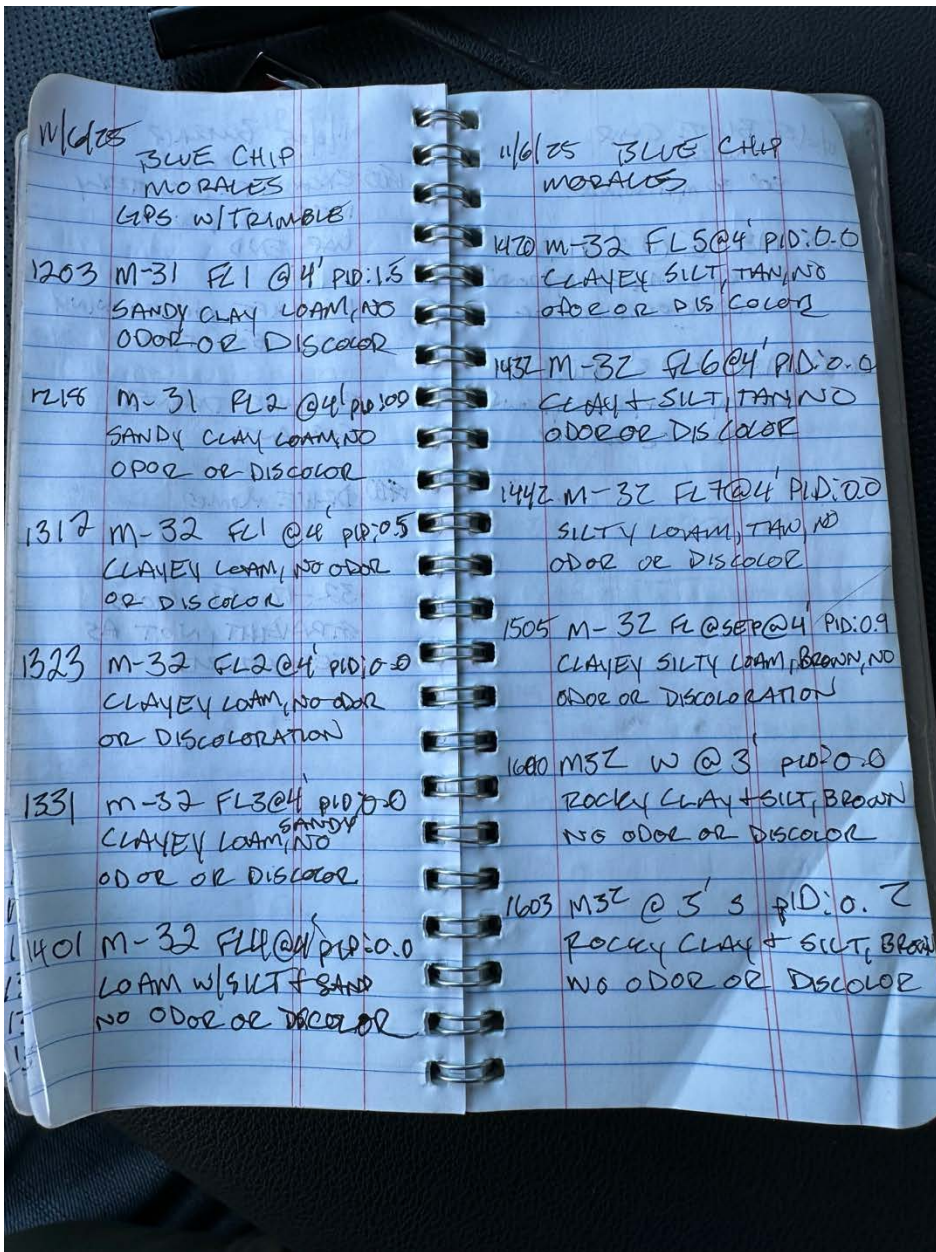 11/6/25
BLUE CHIP
MORALES
GPS W/TRIMBLE
1203 M-31 FL1 @ 4' PID:1.5
SANDY CLAY LOAM, NO
ODOR OR DISCOLOR
1218 M-31 FL2 @4' PID:
SANDY CLAY LOAM, NO
ODOR OR DISCOLOR
1317 M-32 FL1 @4' PID:0.5
CLAYEY LOAM, NO ODOR
OR DISCOLOR
1323 M-32 FL2@4' PID:0.0
CLAYEY LOAM, NO ODOR
OR DISCOLORATION
1331 M-32 FL3@4' PID:0.0
SANDY
CLAYEY LOAM, NO
ODOR OR DISCOLOR
1401 M-32 FL4@4' PID:0.0
LOAM W/SILT + SAND
NO ODOR OR DISCOLOR
11/6/25 BLUE CHIP
MORALES
1420 M-32 FL5@4' PID:0.0
CLAYEY SILT, TAN, NO
ODOR OR DISCOLOR
1432 M-32 FL6@4' PID:0.0
CLAY + SILT, TAN, NO
ODOR OR DISCOLOR
1442 M-32 FL7@4' PID:0.0
SILTY LOAM, TAN, NO
ODOR OR DISCOLOR
1505 M-32 FL@SEP@4' PID:0.9
CLAYEY SILTY LOAM, BROWN, NO
ODOR OR DISCOLORATION
1600 M32 W @ 3' PID:0.0
ROCKY CLAY + SILT, BROWN
NO ODOR OR DISCOLOR
1603 M32 @ 3' S PID:0.2
ROCKY CLAY + SILT, BROWN
NO ODOR OR DISCOLOR